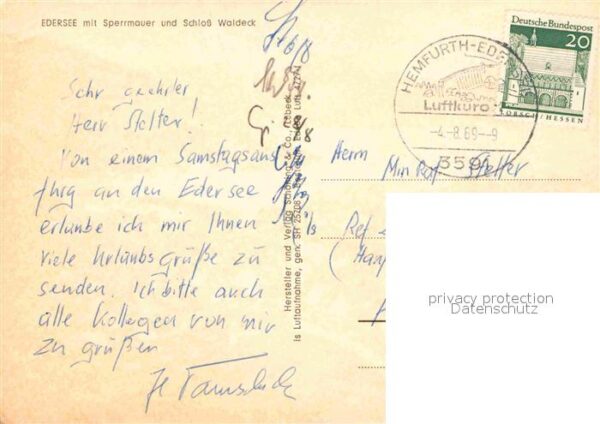 EDERSEE mit Sperrmauer und Schloß Waldeck
Sehr geehrter
Herr Stelter!
Von einem Samstagsaus
flug an den Edersee
erlaube ich mir Ihnen
viele Urlaubsgrüße zu
senden. Ich bitte auch
alle Kollegen von mir
zu grüßen
Hersteller und Verlag Schöning & Co., Lübeck
Deutsche Bundespost
20
LORSCH/HESSEN
HEMFURTH-EDERSEE
Luftkurort
-4.-8.69-9
3591
Herrn
Min Rat Stelter
Ref
privacy protection
Datenschutz